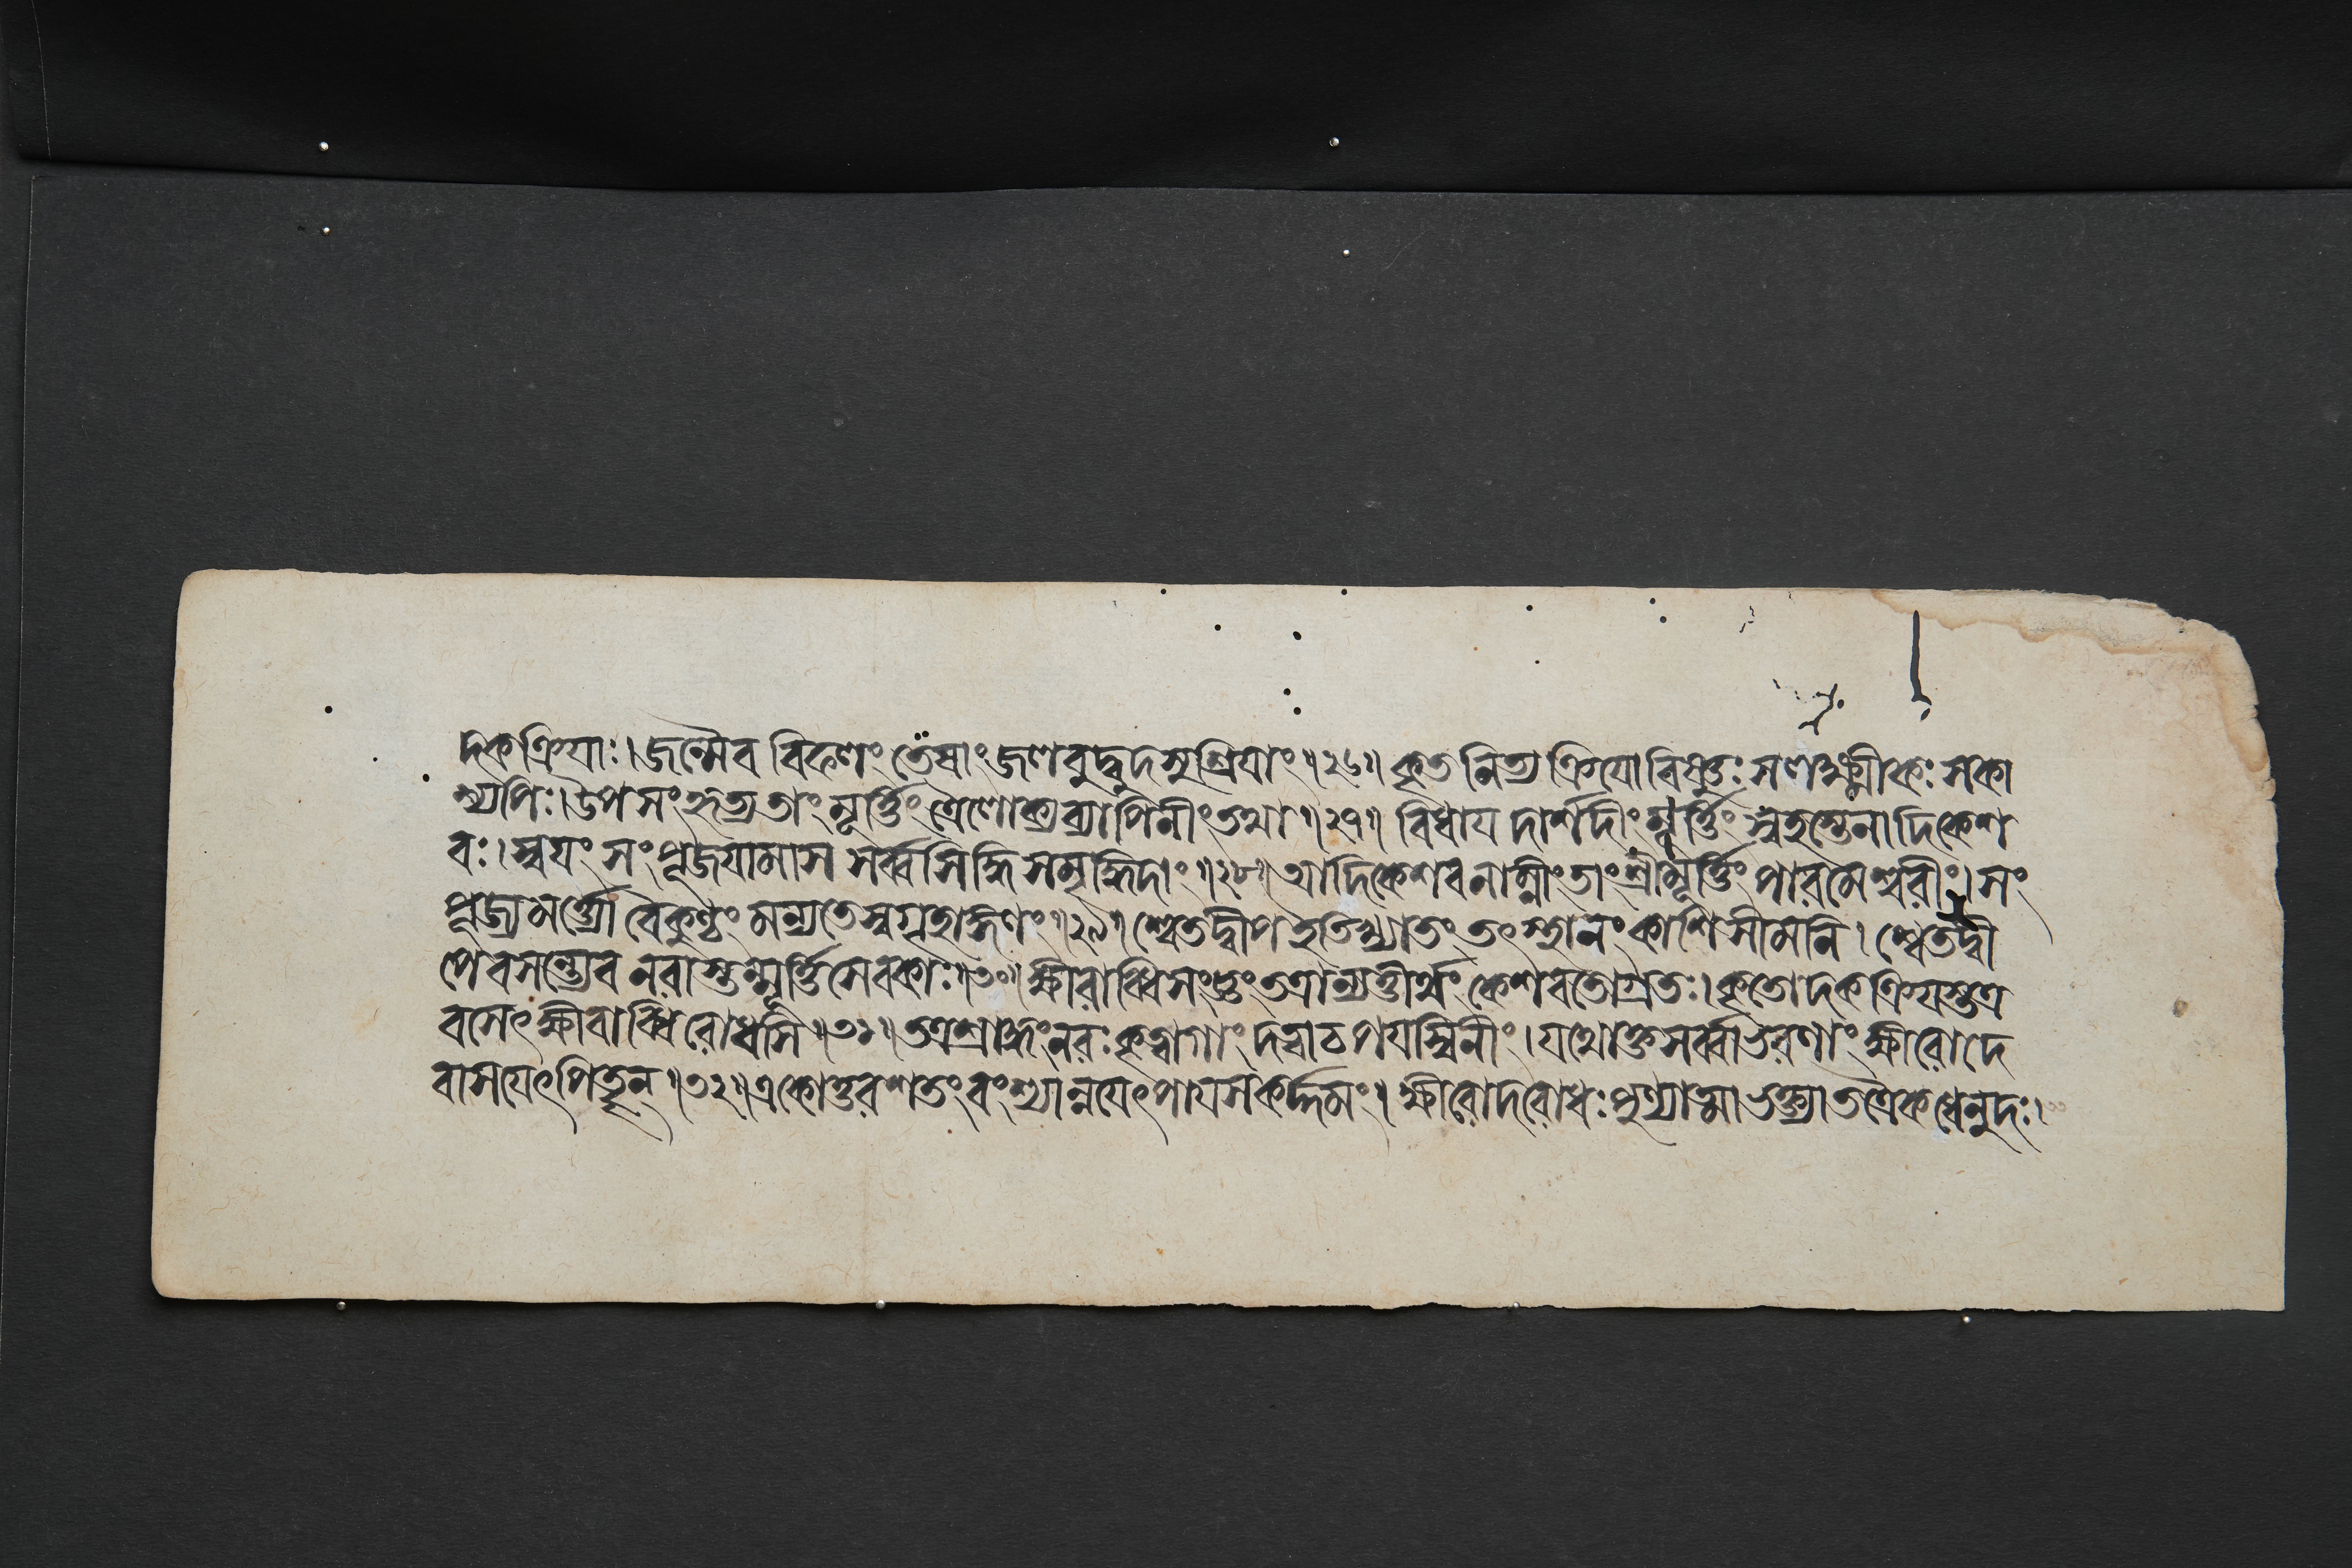 দকক্রিয়াঃ। জন্মৈব বিফলং তেষাং জলবুদ্বুদসুশ্রিযাং॥২৬॥ কৃতনিত্যক্রিযো বিষ্ণুঃ সলক্ষ্মীকঃ সকা
শ্যপিঃ। উপসংহৃত্য তাং মূর্ত্তিং ত্রৈলোক্যব্যাপিনীং তথা॥২৭॥ বিধায দার্শদীং মূর্ত্তিং স্বহস্তেনাদিকেশ
বঃ। স্বযং সংপূজযামাস সর্ব্বসিদ্ধিসমৃদ্ধিদাং॥২৮॥ আদিকেশবনাম্নীং তাং শ্রীমূর্ত্তিং পারমেশ্বরীং। সং
পূজ্য মর্ত্ত্যো বৈকুণ্ঠং মন্যতে স্বগৃহাঙ্গণং॥২৯॥ শ্বেতদ্বীপ ইতি খ্যাতং তৎস্থানং কাশিসীমনি। শ্বেতদ্বী
পে বসন্ত্যেব নরাস্তন্মূর্ত্তিসেবকাঃ॥৩০॥ ক্ষীরাব্ধিসংজ্ঞং তত্রান্যত্তীর্থং কেশবতোগ্রতঃ। কৃতোদকক্রিযস্তত্র
বসেৎ ক্ষীরাব্ধিরোধসি॥৩১॥ তত্র শ্রাদ্ধং নরঃ কৃত্বা গাং দত্বা চ পযস্বিনীং। যথোক্তসর্ব্বাভরণাং ক্ষীরোদে
বাসযেৎ পিতৄন্॥৩২॥ একোত্তরশতং বংশ্যান্নযেৎ পাযসকর্দ্দমং। ক্ষীরোদরোধঃ পুণ্যাত্মা ভক্ত্যা তত্রৈকধেনুদঃ।